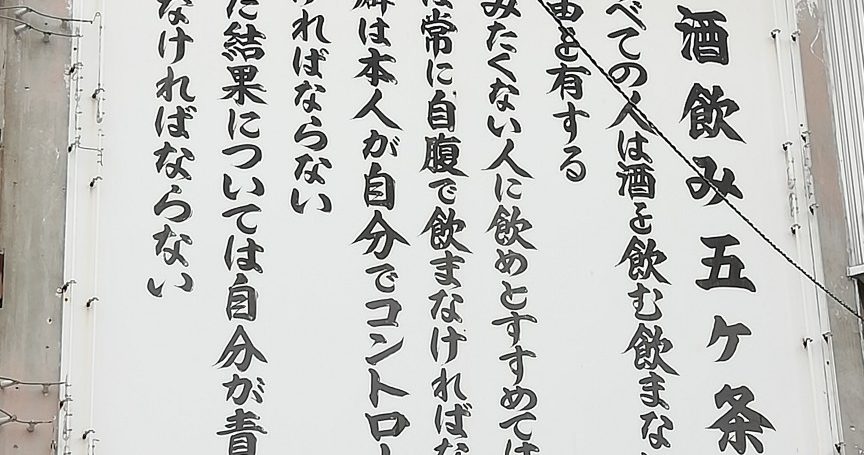 酒飲み五ケ条
べての人は酒を飲む飲まな
由を有する
みたくない人に飲めとすすめては
は常に自腹で飲まなければな
癖は本人が自分でコントロー
ければならない
た結果については自分が責
なければならない